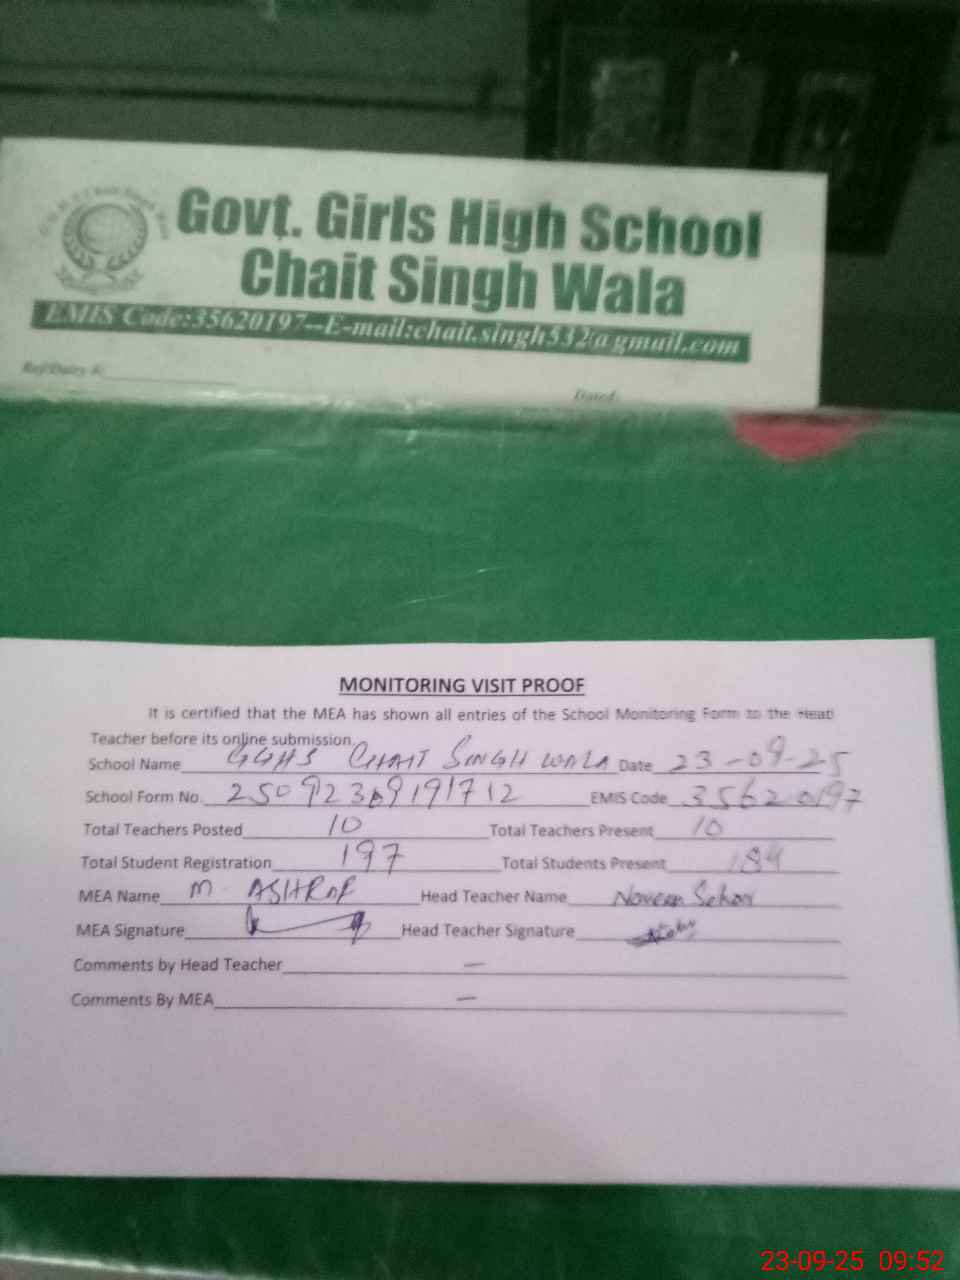 Govt. Girls High School
Chait Singh Wala
EMIS Code:35620197--E-mail:chait.singh532@gmail.com
Ref/Dairy #:
Dated:
MONITORING VISIT PROOF
It is certified that the MEA has shown all entries of the School Monitoring Form to the Head
Teacher before its online submission.
School Name GGHS CHAIT SINGH WALA Date 23-09-25
School Form No. EMIS Code 35620197
Total Teachers Posted 10 Total Teachers Present 10
Total Student Registration 197 Total Students Present 184
MEA Name M. ASHRAF Head Teacher Name
MEA Signature Head Teacher Signature
Comments by Head Teacher —
Comments By MEA —
23-09-25 09:52